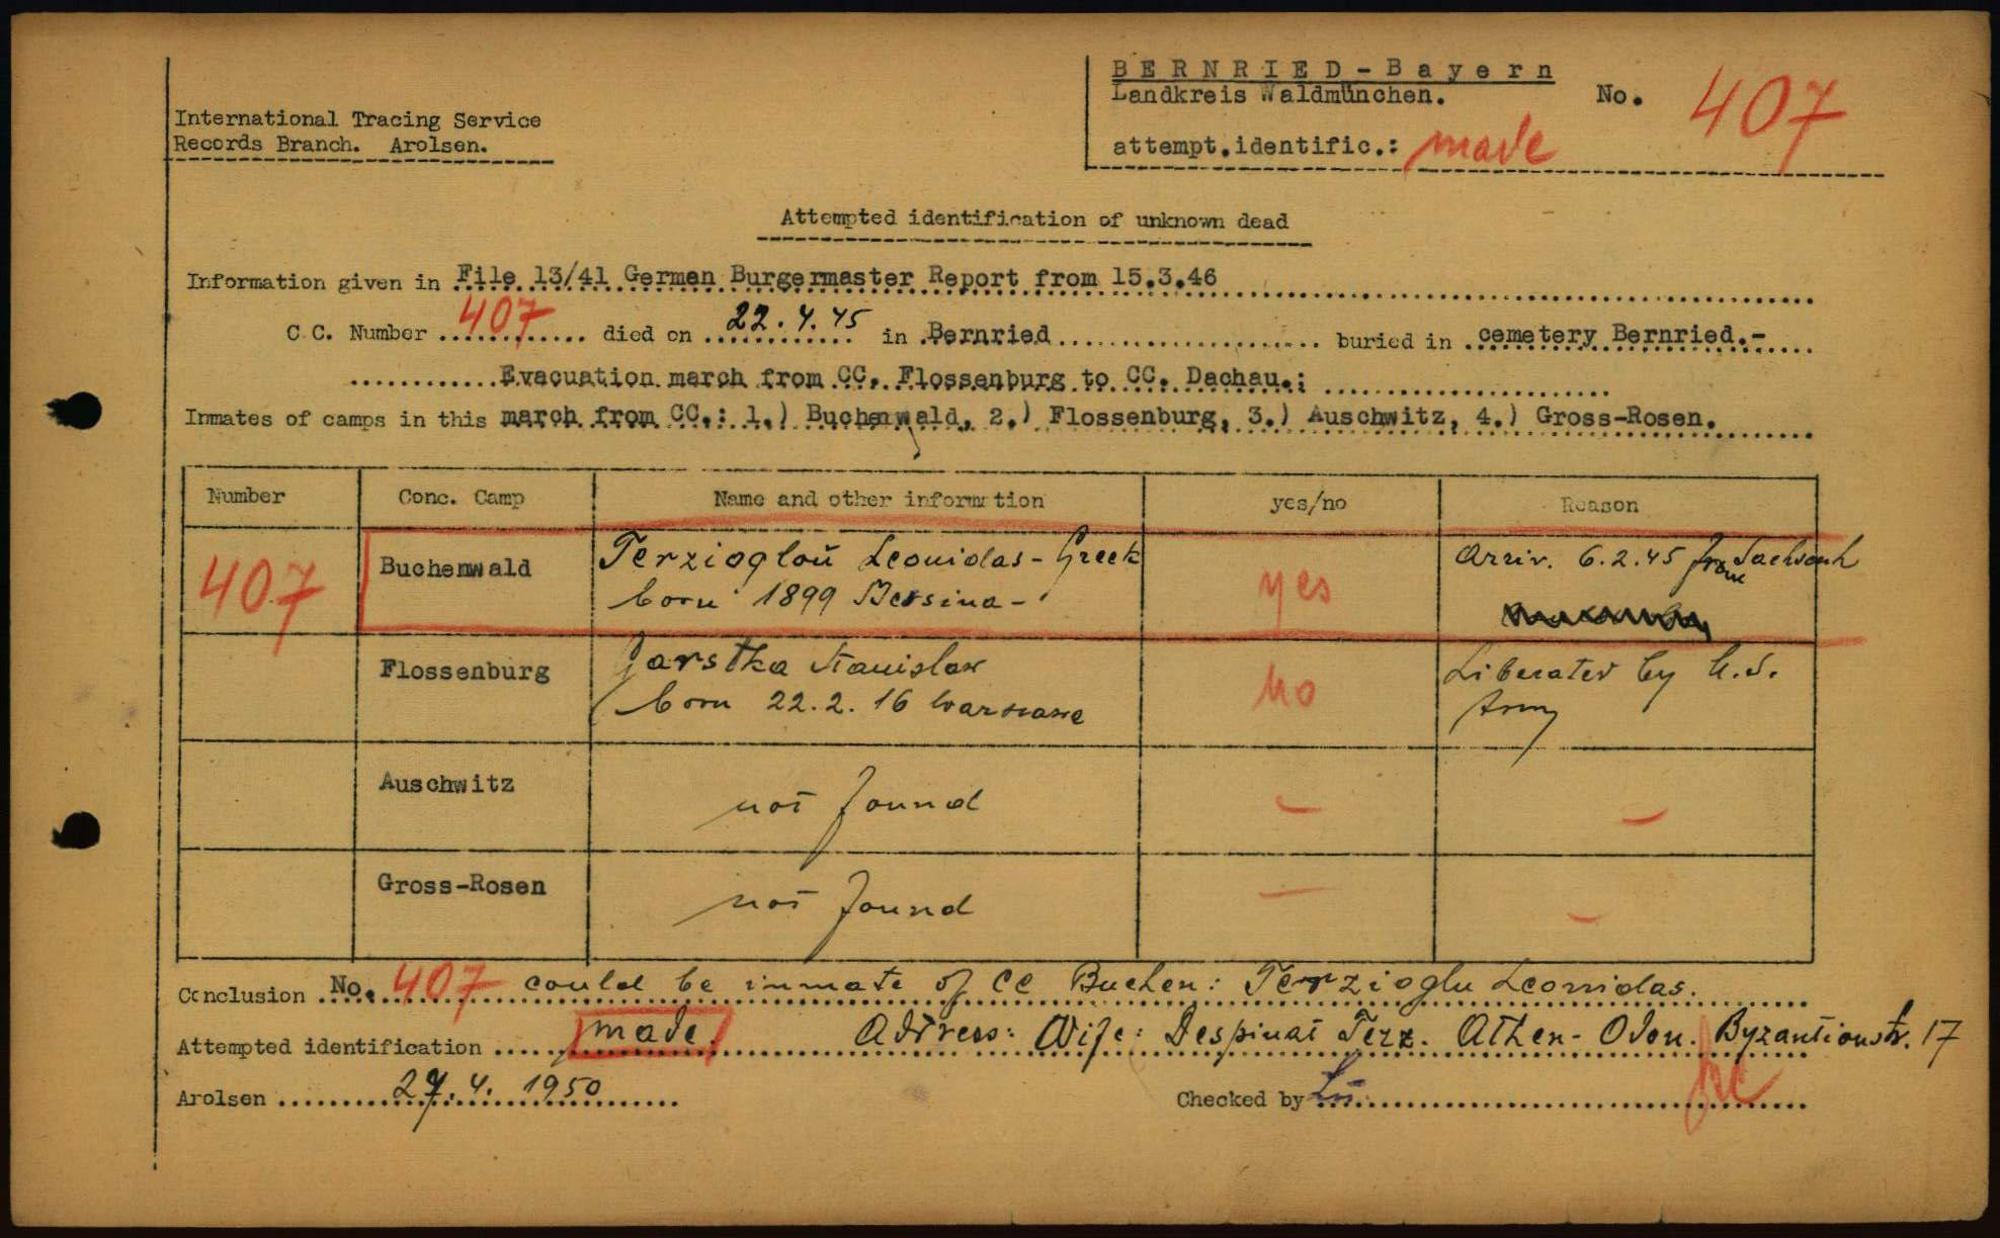 BERNRIED-Bayern
Landkreis Waldmünchen. No. 407
International Tracing Service
Records Branch. Arolsen.
attempt.identific.: made
Attempted identification of unknown dead
Information given in File 13/41 German Burgermaster Report from 15.3.46
C.C. Number 407 died on 22.4.45 in Bernried buried in cemetery Bernried.-
Evacuation march from CC. Flossenburg to CC. Dachau.;
Inmates of camps in this march from CC.: 1.) Buchenwald, 2.) Flossenburg, 3.) Auschwitz, 4.) Gross-Rosen.
Number Conc. Camp Name and other information yes/no Reason
407 Buchenwald Terzioglou Leonidas - Greek yes Arriv. 6.2.45 from Sachsenh
born 1899 Messina -
Flossenburg Garstka Stanislaw no Liberated by U.S.
born 22.2.16 Warszawa Army
Auschwitz not found - -
Gross-Rosen not found - -
Conclusion No. 407 could be inmate of CC Buchen: Terzioglu Leonidas.
Attempted identification made. Address: Wife: Despinat Terz. Athen - Odon. Byzantionstr. 17
Arolsen 27.4. 1950 Checked by